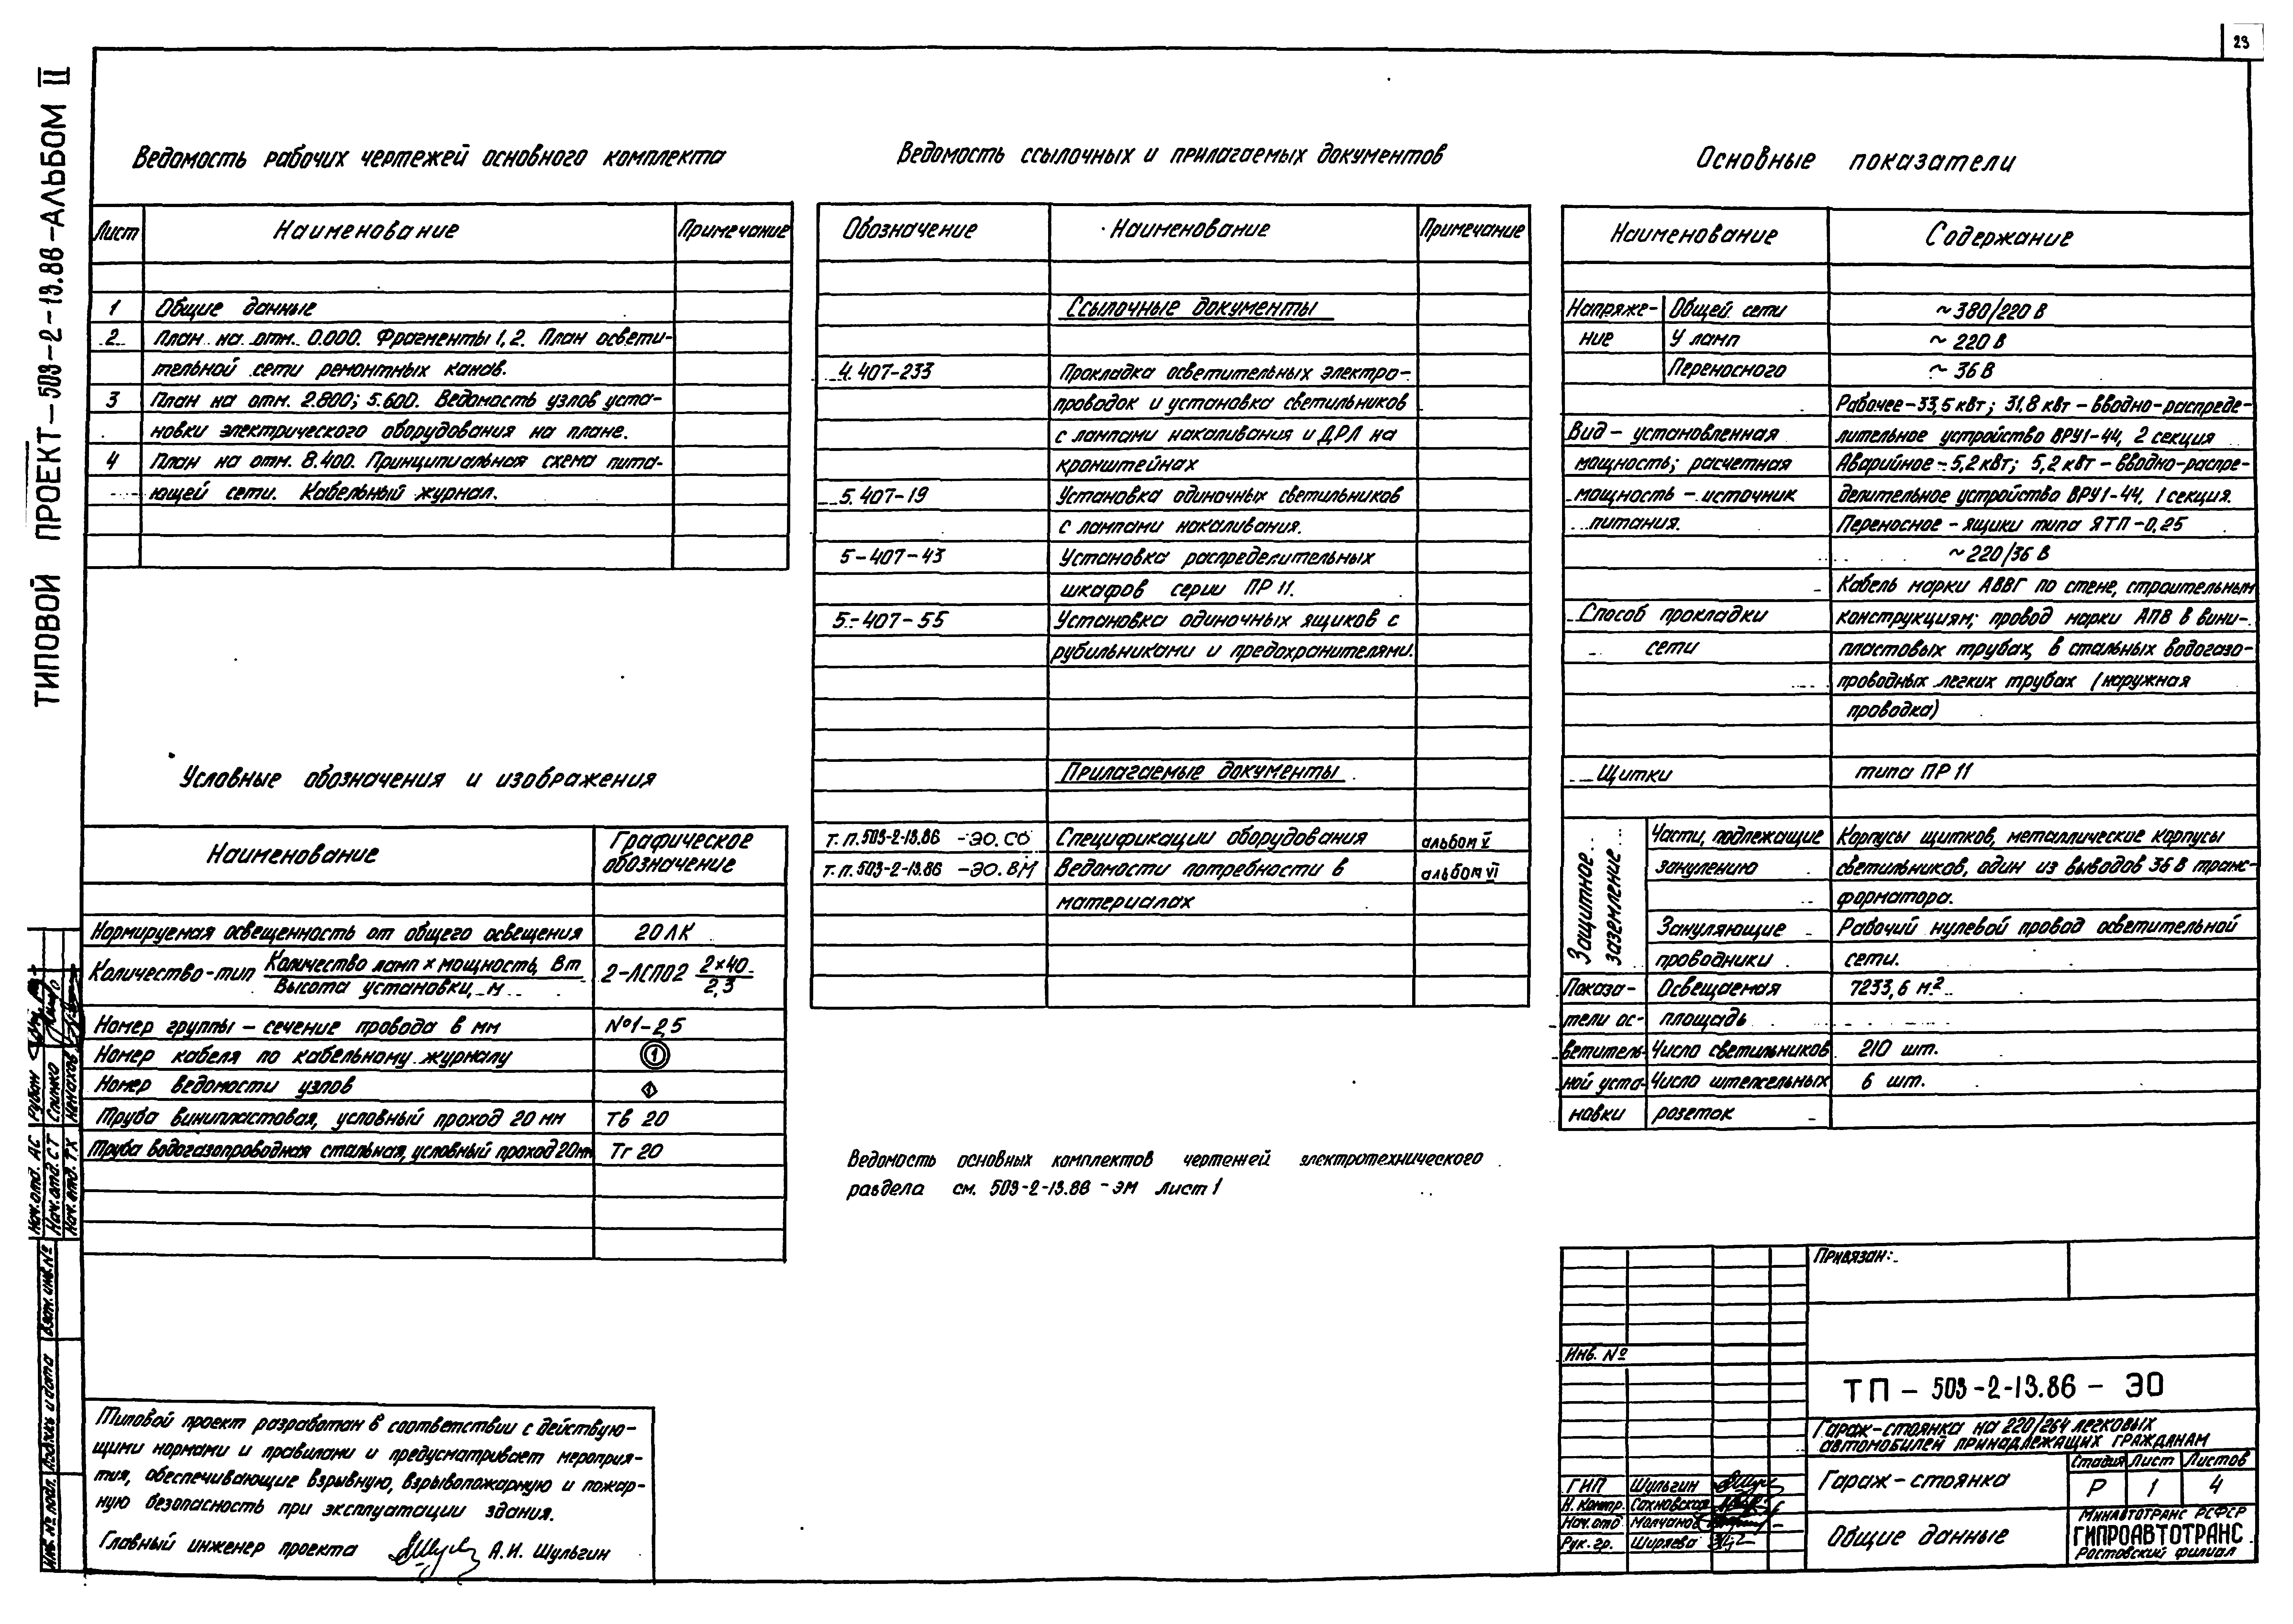 23
ТИПОВОЙ ПРОЕКТ-503-2-13.86-АЛЬБОМ II
Ведомость рабочих чертежей основного комплекта
Лист Наименование Примечание
1 Общие данные
2 План на отм. 0.000. Фрагменты 1,2. План освети-
тельной сети ремонтных канав.
3 План на отм. 2.800; 5.600. Ведомость узлов уста-
новки электрического оборудования на плане.
4 План на отм. 8.400. Принципиальная схема пита-
ющей сети. Кабельный журнал.
Условные обозначения и изображения
Наименование Графическое
обозначение
Нормируемая освещенность от общего освещения 20 ЛК
Количество-тип Количество ламп × мощность, Вт 2-ЛСП02 2×40
Высота установки, м 2,3
Номер группы – сечение провода в мм №1-2,5
Номер кабеля по кабельному журналу 1
Номер ведомости узлов 1
Труба винипластовая, условный проход 20 мм Тв 20
Труба водогазопроводная стальная, условный проход 20мм Тг 20
Типовой проект разработан в соответствии с действую-
щими нормами и правилами и предусматривает мероприя-
тия, обеспечивающие взрывную, взрывопожарную и пожар-
ную безопасность при эксплуатации здания.
Главный инженер проекта А.И. Шульгин
Ведомость ссылочных и прилагаемых документов
Обозначение Наименование Примечание
Ссылочные документы
4.407-233 Прокладка осветительных электро-
проводок и установка светильников
с лампами накаливания и ДРЛ на
кронштейнах
5.407-19 Установка одиночных светильников
с лампами накаливания.
5-407-43 Установка распределительных
шкафов серии ПР 11.
5.-407-55 Установка одиночных ящиков с
рубильниками и предохранителями.
Прилагаемые документы
Т.п. 503-2-13.86 -ЭО.СО Спецификации оборудования альбом V
Т.п. 503-2-13.86 -ЭО.ВМ Ведомости потребности в альбом VI
материалах
Ведомость основных комплектов чертежей электротехнического
раздела см. 503-2-13.86 -ЭМ лист 1
Основные показатели
Наименование Содержание
Напряже- Общей сети ~380/220 В
ние У ламп ~ 220 В
Переносного ~ 36 В
Рабочее-33,5 кВт; 31.8 кВт - вводно-распреде-
Вид – установленная лительное устройство ВРУ1-44, 2 секция
мощность; расчетная Аварийное - 5,2 кВт; 5,2 кВт - вводно-распре-
мощность – источник делительное устройство ВРУ1-44, 1 секция.
питания. Переносное - ящики типа ЯТП-0,25
~220/36 В
Кабель марки АВВГ по стене, строительным
Способ прокладки конструкциям; провод марки АПВ в вини-
сети пластовых трубах, в стальных водогазо-
проводных легких трубах (наружная
проводка)
Щитки типа ПР 11
Защитное
заземление
Части, подлежащие Корпусы щитков, металлические корпусы
занулению светильников, один из выводов 36 В транс-
форматора.
Зануляющие Рабочий нулевой провод осветительной
проводники сети.
Показа- Освещаемая 7233,6 м.²
тели ос- площадь
ветитель- Число светильников 210 шт.
ной уста- Число штепсельных 6 шт.
новки розеток
Привязан:
Инв. №
ТП – 503-2-13.86 – ЭО
Гараж-стоянка на 220/264 легковых
автомобилей принадлежащих гражданам
ГИП Шульгин Гараж-стоянка Стадия Лист Листов
Н. контр. Сахновская Р 1 4
Нач.отд Молчанов
Рук.гр. Ширяева Общие данные
Минавтотранс РСФСР
ГИПРОАВТОТРАНС
Ростовский филиал
Нач.отд. АС Рубан
Нач.отд. СТ
Нач.отд. ТХ
Взам. инв. №
Подпись и дата
Инв. № подл.